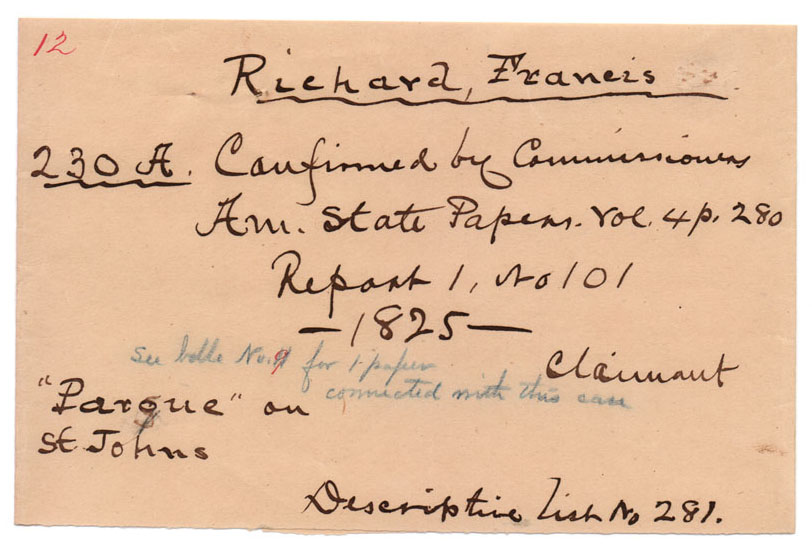 12
Richard, Francis
230 A. Confirmed by Commissioners
Am. State Papers. Vol. 4 p. 280
Report 1, No 101
— 1825 —
See bdle No. 9 for 1 paper
connected with this case
Claimant
"Pargue" on
St Johns
Descriptive list No 281.